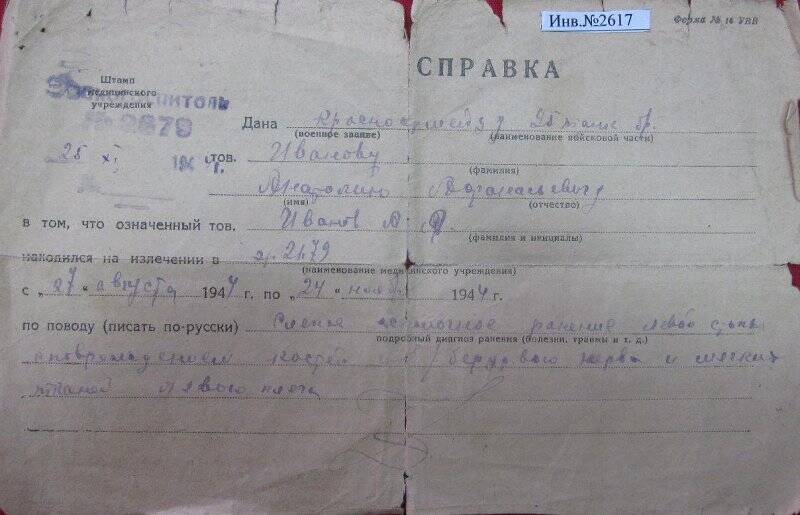 Инв.№2617
Форма № 16 УВВ
СПРАВКА
Штамп
медицинского
учреждения
Эвакогоспиталь
№ 2679
Дана Красноармейцу 25 танк бр.
(военное звание) (наименование войсковой части)
25 XI 194 г.
тов. Иванову
(фамилия)
Анатолию Афанасьевичу
(имя) (отчество)
в том, что означенный тов. Иванов А. А.
(фамилия и инициалы)
находился на излечении в 2679
(наименование медицинского учреждения)
с „27" августа 1944 г. по „24" ноября 1944 г.
по поводу (писать по-русски) Слепое осколочное ранение левой стопы
подробный диагноз ранения (болезни, травмы и т. д.)
с повреждением костей нерва и мягких
тканей левого плеча